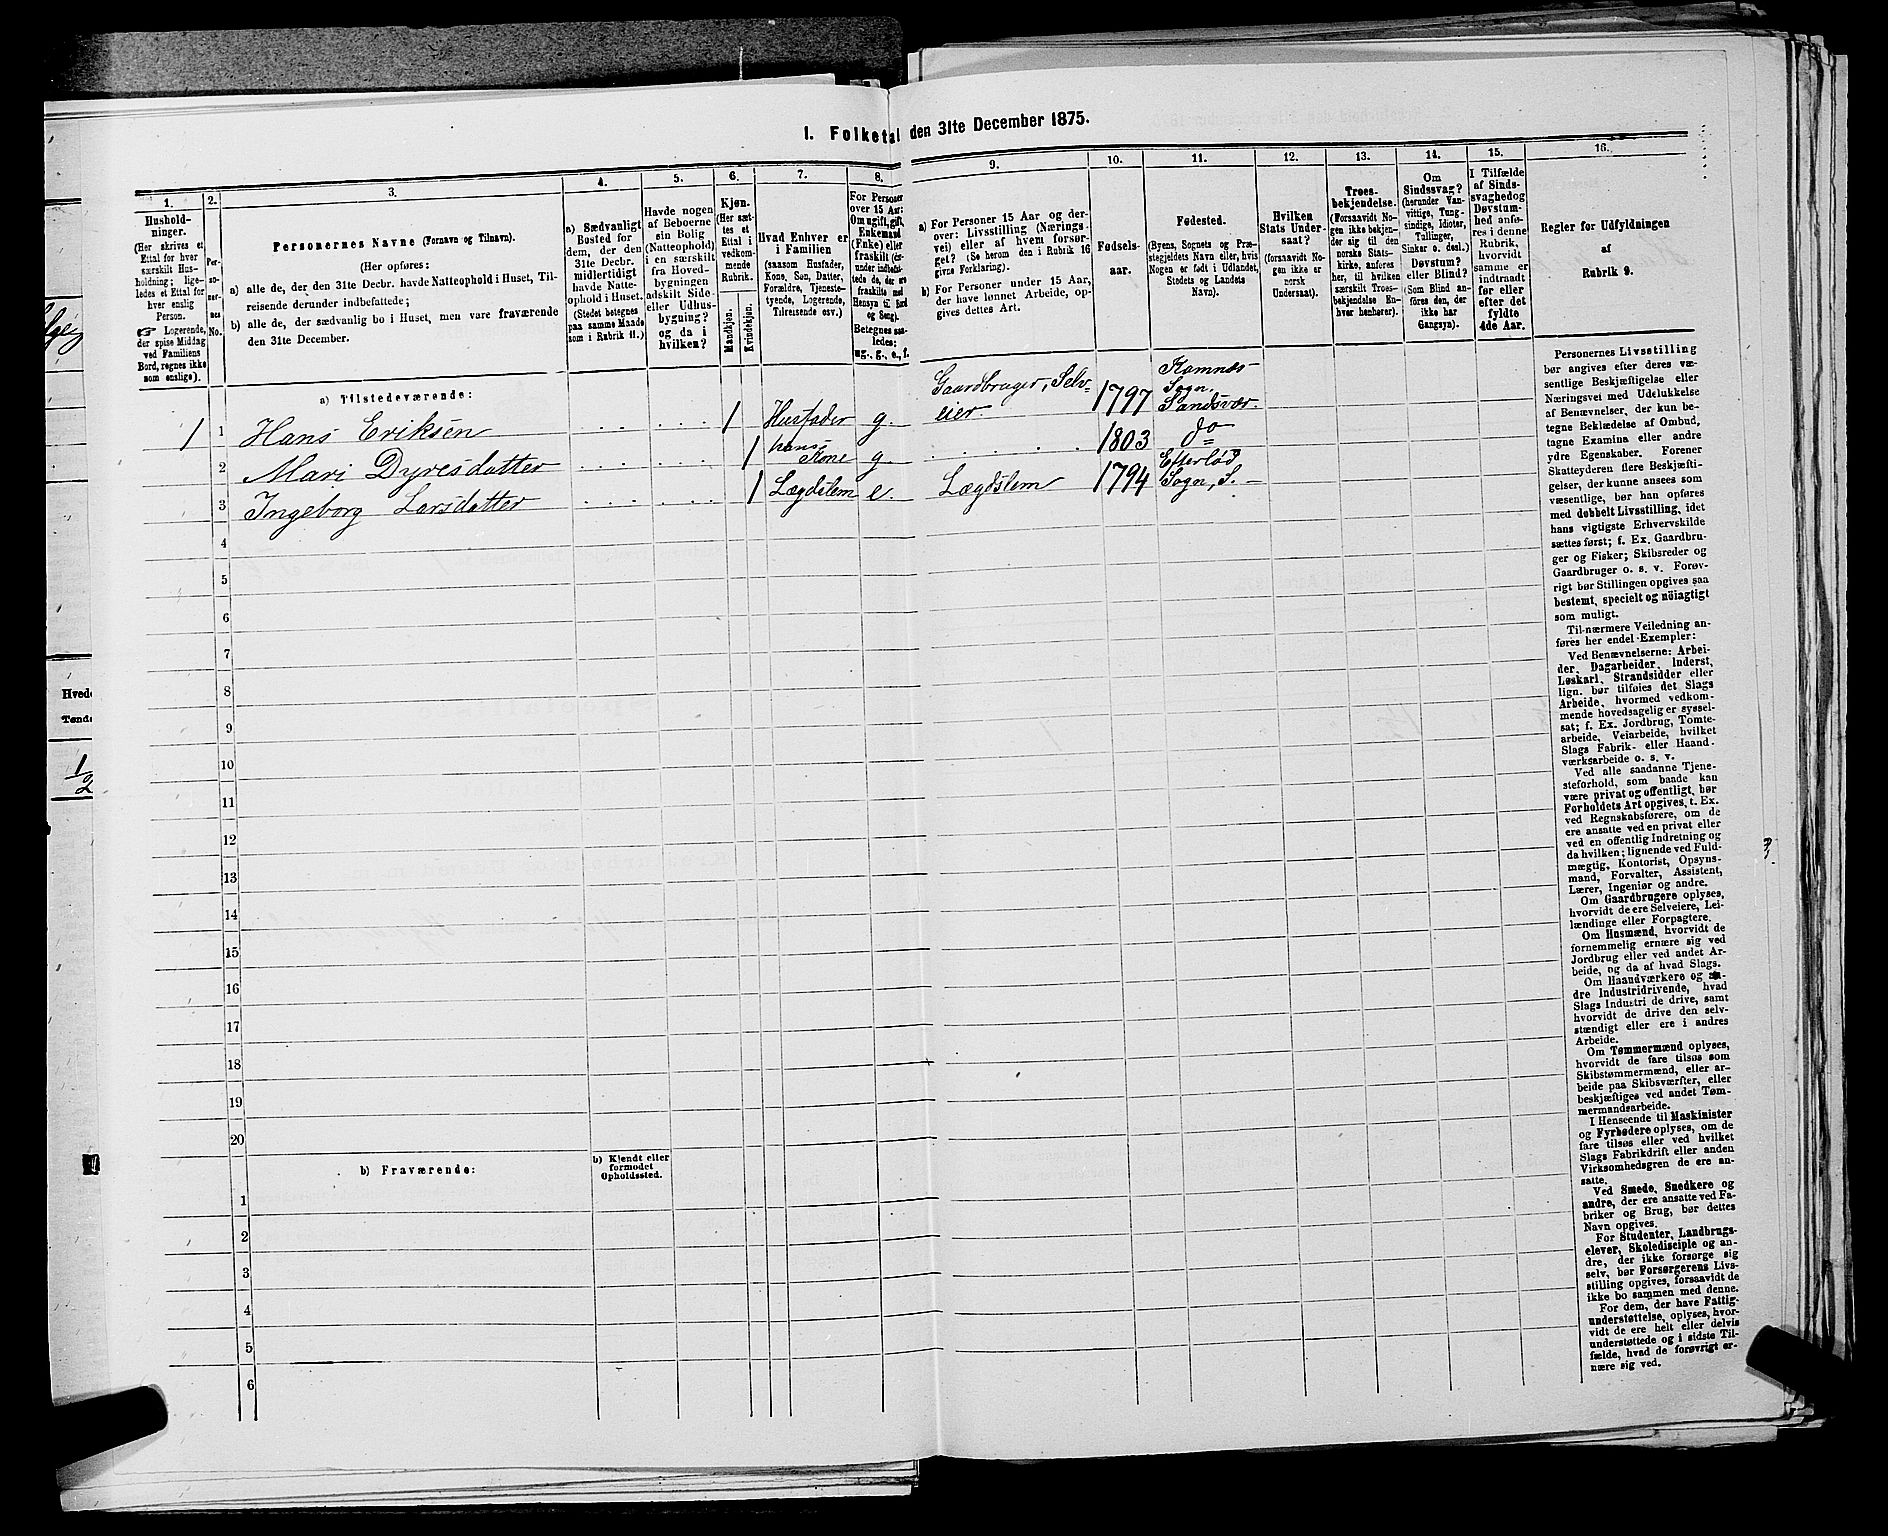 I. Folketal den 31te December 1875.
1.
Hushold-
ninger.
(Her skrives et
Ettal for hver
særskilt Hus-
holdning; lige-
ledes et Ettal for
hver enslig
Person.
☞ Logerende,
der spise Middag
ved Familiens
Bord, regnes ikke
som enslige).
2.
Per-
so-
ner-
nes
No.
3.
Personernes Navne (Fornavn og Tilnavn).
(Her opføres:
a) alle de, der den 31te Decbr. havde Natteophold i Huset, Til-
reisende derunder indbefattede;
b) alle de, der sædvanlig bo i Huset, men vare fraværende
den 31te December.
4.
a) Sædvanligt
Bosted for
dem, der den
31te Decbr.
midlertidigt
havde Natte-
ophold i Huset.
(Stedet betegnes
paa samme Maade
som i Rubrik 11.)
5.
Havde nogen
af Beboerne
sin Bolig
(Natteophold)
i en særskilt
fra Hoved-
bygningen
adskilt Side-
eller Udhus-
bygning?
og da i
hvilken?
6.
Kjøn.
(Her sæt-
tes et
Ettal i
vedkom-
mende
Rubrik.
Mandkjøn.
Kvindekjøn.
7.
Hvad Enhver er
i Familien
(saasom Husfader,
Kone, Søn, Datter,
Forældre, Tjeneste-
tyende, Logerende,
Tilreisende osv.)
8.
For Personer
over 15 Aar:
Om ugift, gift,
Enkemand
(Enke) eller
fraskilt (der-
under indbefat-
tede de, der ere
fraskilte med
Hensyn til Bord
og Seng).
Betegnes saa-
ledes:
ug., g., e., f.
9.
a) For Personer 15 Aar og der-
over: Livsstilling (Nærings-
vei) eller af hvem forsør-
get? (Se herom den i Rubrik 16
givne Forklaring).
b) For Personer under 15 Aar,
der have lønnet Arbeide, op-
gives dettes Art.
10.
Fødsels-
aar.
11.
Fødested.
(Byens, Sognets og Præ-
stegjeldets Navn eller, hvis
Nogen er født i Udlandet,
Stedets og Landets
Navn).
12.
Hvilken
Stats Under-
saat?
(forsaavidt No-
gen ikke er
norsk
Undersaat).
13.
Troes-
bekjendelse.
(Forsaavidt No-
gen ikke bekjen-
der sig til den
norske Stats-
kirke, anføres
her, til hvilken
særskilt Troes-
bekjendelse En-
hver henhører).
14.
Om
Sindssvag?
(herunder Van-
vittige, Tung-
sindige, Idioter,
Tullinger,
Sinker o. desl.).
Døvstum?
eller Blind?
(Som Blind an-
føres den, der
ikke har
Gangsyn).
15.
I Tilfælde
af Sinds-
svaghed og
Døvstum-
hed anfø-
res i denne
Rubrik,
hvorvidt
samme er
indtraadt
før eller
efter det
fyldte
4de Aar.
16.
Regler for Udfyldningen
af
Rubrik 9.
a) Tilstedeværende:
1 1 Hans Eriksen 1 Husfader g. Gaardbruger, Selv-
eier 1797 Komnæs
Sogn,
Sandsvær.
2 Mari Dyresdatter 1 hans
Kone g. 1803 do
3 Ingeborg Larsdatter 1 Lægdslem e. Lægdslem 1794 Efterløð
Sogn, S.
4
5
6
7
8
9
10
11
12
13
14
15
16
17
18
19
20
b) Fraværende:
b) Kjendt eller
formodet
Opholdssted.
1
2
3
4
5
6
Personernes Livsstilling
bør angives efter deres væ-
sentlige Beskjæftigelse eller
Næringsvei med Udelukkelse
af Benævnelser, der kun be-
tegne Beklædelse af Ombud,
tagne Examina eller andre
ydre Egenskaber. Forener
Skatteyderen flere Beskjæfti-
gelser, der kunne ansees som
væsentlige, bør han opføres
med dobbelt Livsstilling, idet
hans vigtigste Erhvervskilde
sættes først; f. Ex. Gaardbru-
ger og Fisker; Skibsreder og
Gaardbruger o. s. v. Forøv-
rigt bør Stillingen opgives saa
bestemt, specielt og nöiagtigt
som muligt.
Til nærmere Veiledning an-
føres her endel Exempler:
Ved Benævnelserne: Arbei-
der, Dagarbeider, Inderst,
Løskarl, Strandsidder eller
lign. bør tilføies det Slags
Arbeide, hvormed vedkom-
mende hovedsagelig er syssel-
sat; f. Ex. Jordbrug, Tomte-
arbeide, Veiarbeide, hvilket
Slags Fabrik- eller Haand-
værksarbeide o. s. v.
Ved alle saadanne Tjene-
steforhold, som baade kan
være privat og offentligt, bør
Forholdets Art opgives, t. Ex.
ved Regnskabsførere, om de
ere ansatte ved en privat eller
ved en offentlig Indretning og
da hvilken; lignende ved Fuld-
mægtig, Kontorist, Opsyns-
mand, Forvalter, Assistent,
Lærer, Ingeniør og andre.
Om Gaardbrugere oplyses,
hvorvidt de ere Selveiere, Lei-
lændinge eller Forpagtere.
Om Husmænd, hvorvidt de
fornemmelig ernære sig ved
Jordbrug eller ved andet Ar-
beide, og da af hvad Slags.
Om Haandværkere og an-
dre Industridrivende, hvad
Slags Industri de drive, samt
hvorvidt de drive den selv-
stændigt eller ere i andres
Arbeide.
Om Tømmermænd oplyses,
hvorvidt de fare tilsøs som
Skibstømmermænd, eller ar-
beide paa Skibsværfter, eller
beskjæftiges ved andet Tøm-
mermandsarbeide.
I Henseende til Maskinister
og Fyrbødere oplyses, om de
fare tilsøs eller ved hvilket
Slags Fabrikdrift eller anden
Virksomhedsgren de ere an-
satte.
Ved Smede, Snedkere og
andre, der ere ansatte ved Fa-
briker og Brug, bør dettes
Navn opgives.
For Studenter, Landbrugs-
elever, Skoledisciple og an-
dre, der ikke forsørge sig
selv, bør Forsørgerens Livs-
stilling opgives, forsaavidt de
ikke bo sammen med denne.
For dem, der have Fattig-
understøttelse, oplyses, hvor-
vidt de ere helt eller delvis
understøttede og i sidste Til-
fælde, hvad de forøvrigt er-
nære sig ved.
Hvede
Tønde
1/2